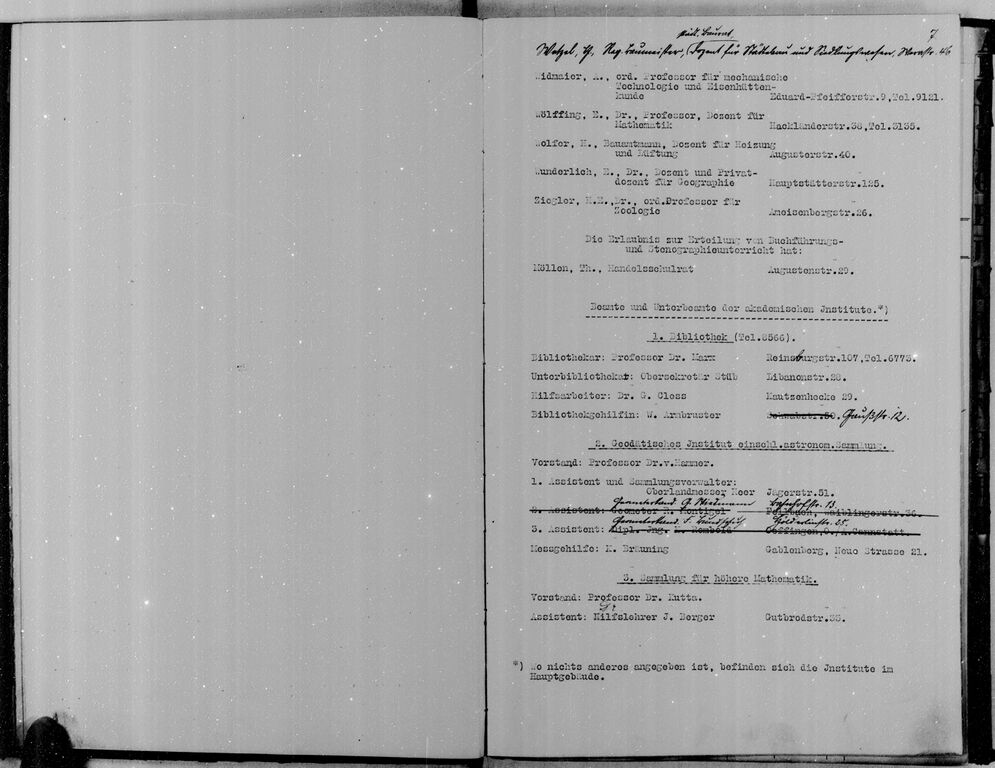 7
städt. Baurat
Wetzel, H., Reg. baumeister, Dozent für Städtebau und Siedlungswesen, Werastr. 46
Widmaier, A., ord. Professor für mechanische
Technologie und Eisenhütten-
kunde Eduard-Pfeifferstr.9,Tel.9121.
Wölffing, E., Dr., Professor, Dozent für
Mathematik Hackländerstr.38,Tel.3135.
Wolfer, H., Bauamtmann, Dozent für Heizung
und Lüftung Augustenstr.40.
Wunderlich, E., Dr., Dozent und Privat-
dozent für Geographie Hauptstätterstr.125.
Ziegler, H.E.,Dr., ord.Professor für
Zoologie Ameisenbergstr.26.
Die Erlaubnis zur Erteilung von Buchführungs-
und Stenographieunterricht hat:
Möllen, Th., Handelsschulrat Augustenstr.29.
Beamte und Unterbeamte der akademischen Jnstitute.*)
1. Bibliothek (Tel.8566).
Bibliothekar: Professor Dr. Marx Reinsburgstr.107,Tel.6773.
Unterbibliothekar: Obersekretär Stüb Libanonstr.28.
Hilfsarbeiter: Dr. G. Cless Kautzenhecke 29.
Bibliothekgehilfin: W. Armbruster Schwabstr.50. Gaußstr. 12.
2. Geodätisches Jnstitut einschl.astronom.Sammlung.
Vorstand: Professor Dr.v.Hammer.
1. Assistent und Sammlungsverwalter:
Oberlandmesser Heer Jägerstr.51.
Bahnhofstr. 13.
2. Assistent: Geometer R. Montigel Fellbach, Waiblingerstr.36.
Hölderlinstr. 25.
3. Assistent: Dipl. Jng. K. Rembold Oeffingen,O./A.Cannstatt.
Messgehilfe: K. Bräuning Gablenberg, Neue Strasse 21.
3. Sammlung für höhere Mathematik.
Vorstand: Professor Dr. Kutta.
Dr.
Assistent: Hilfslehrer J. Berger Gutbrodstr.33.
*) Wo nichts anderes angegeben ist, befinden sich die Jnstitute im
Hauptgebäude.